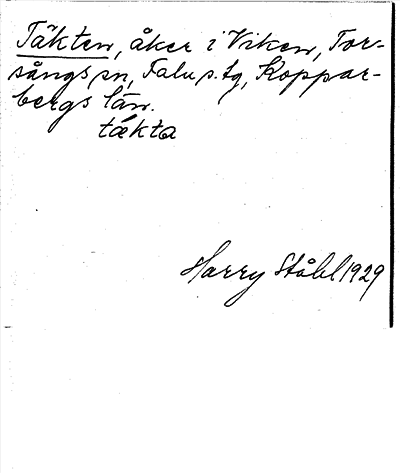 Täkten, åker i Viken, Tor-
sångs sn, Falu s. tg, Koppar-
bergs län.
tækta
Harry Ståhl 1929